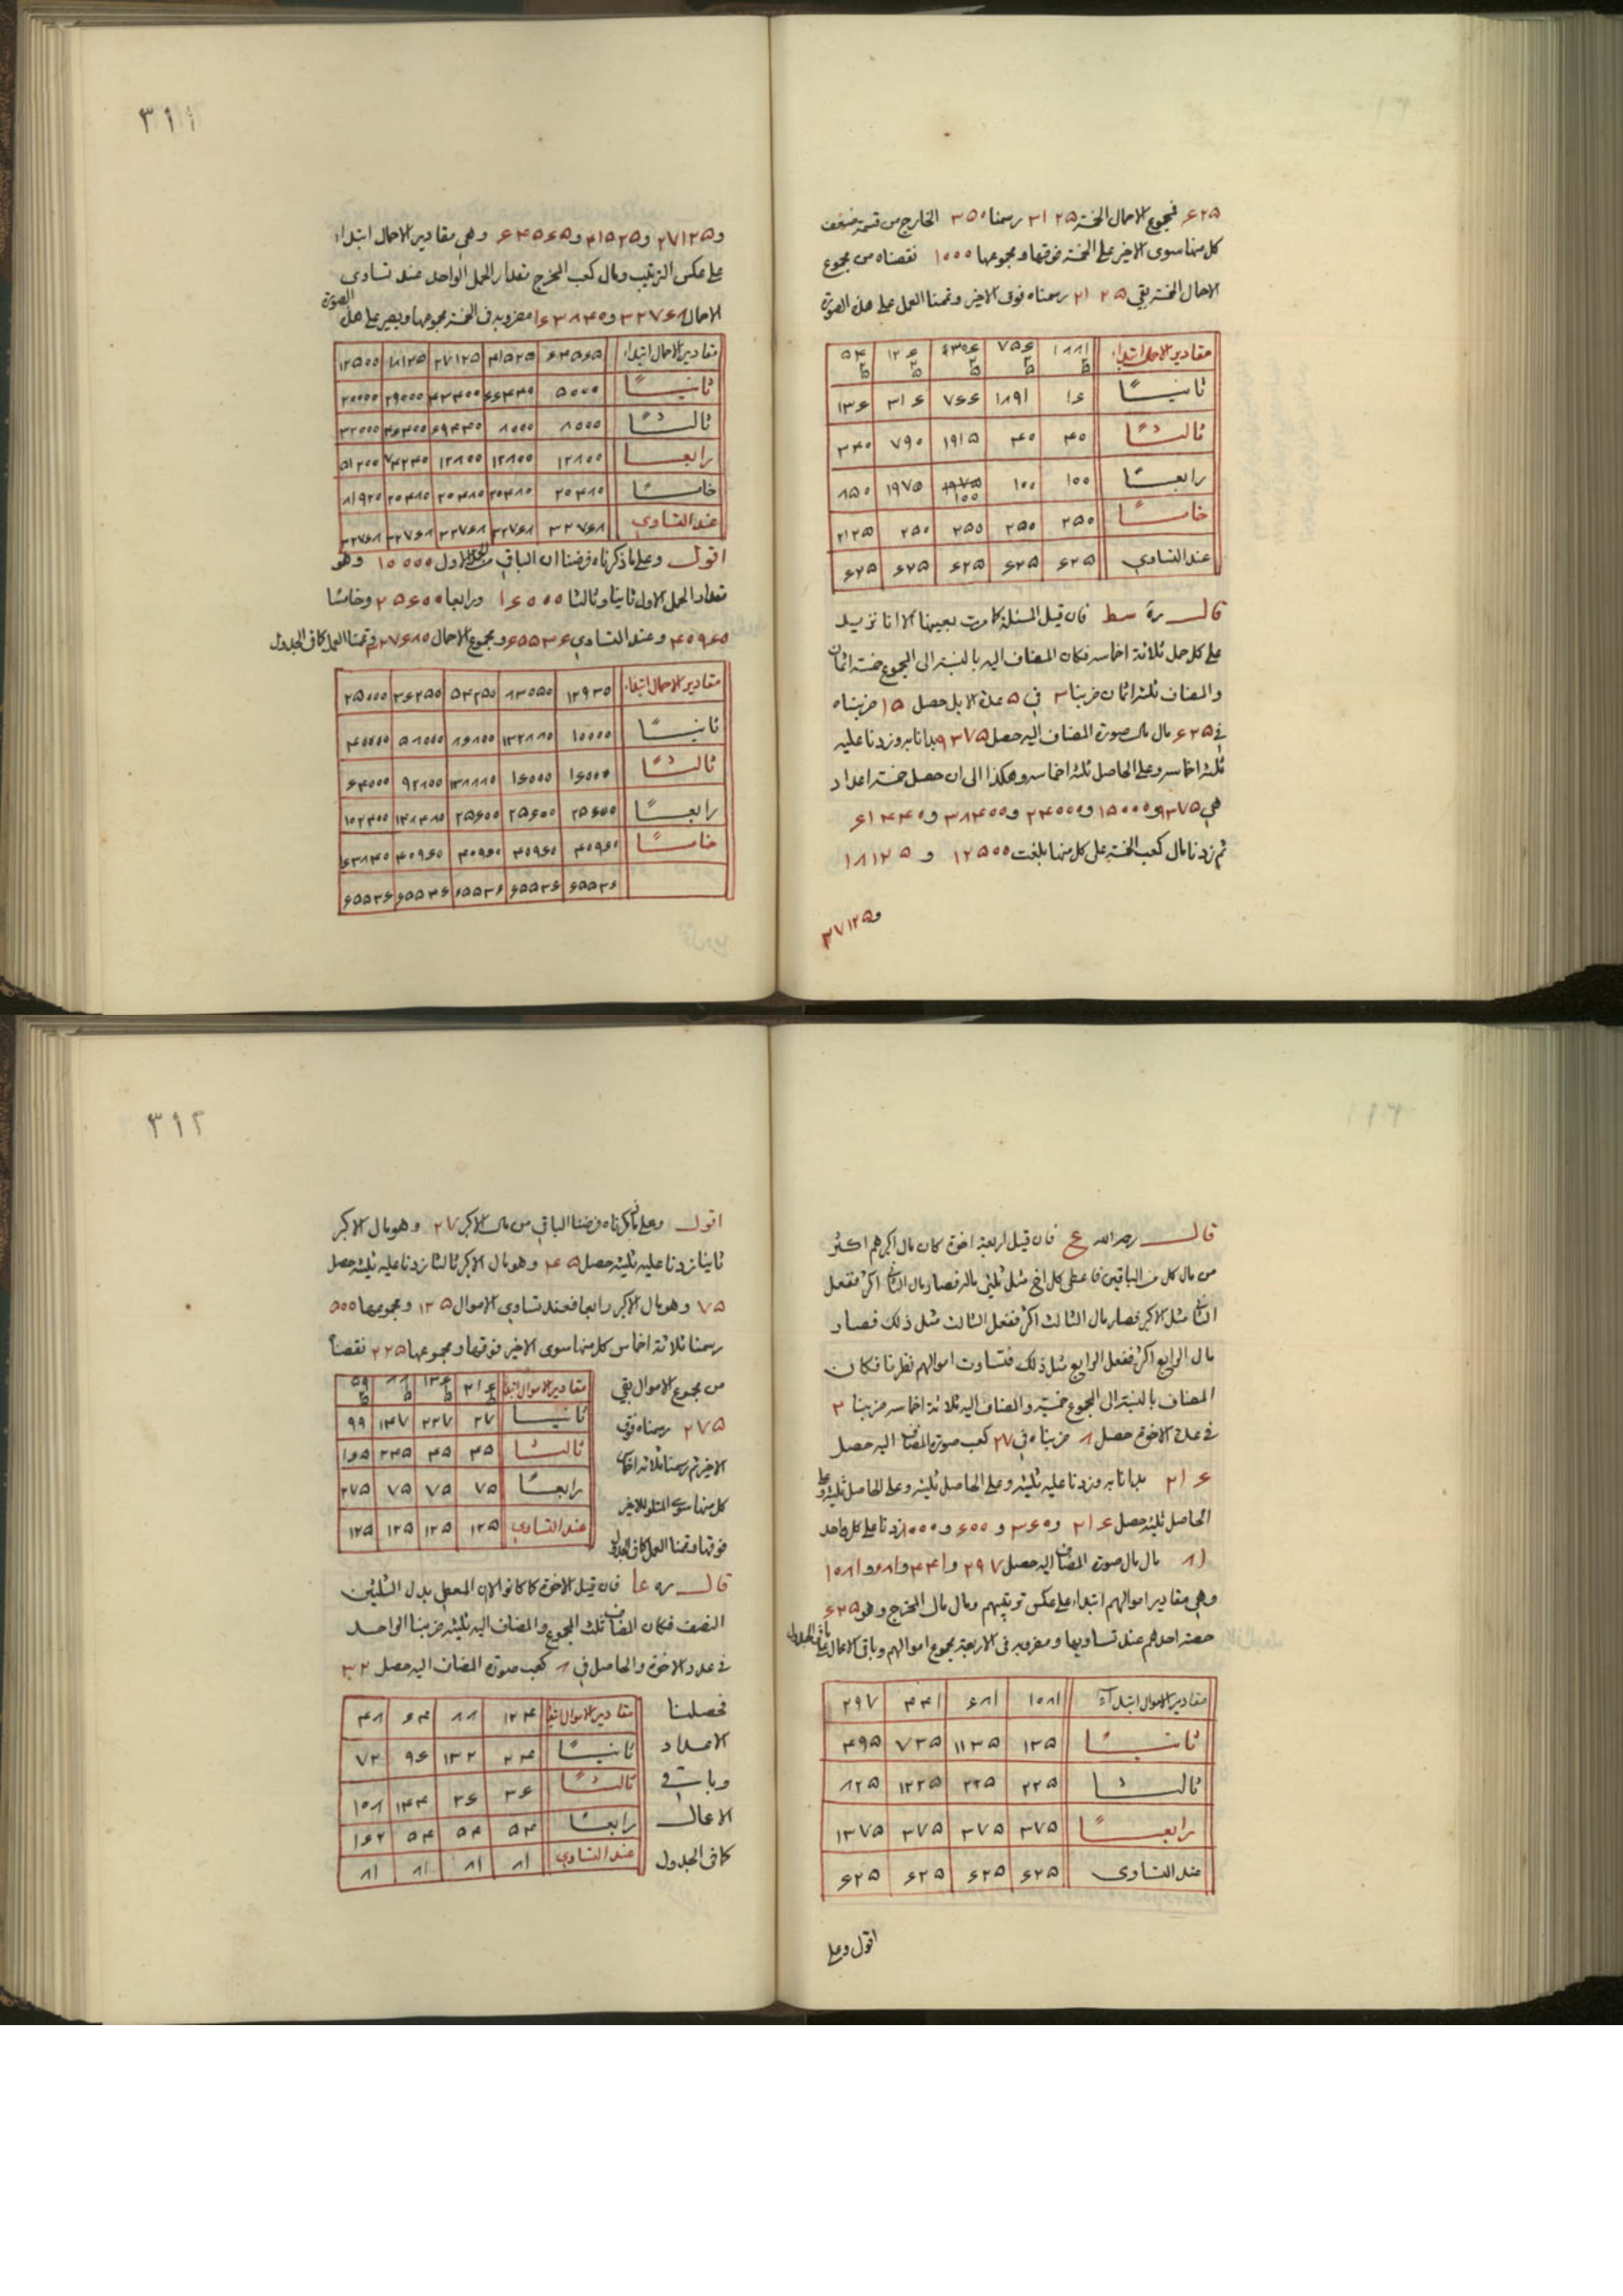 ٦٢٥ فمجموع الاحمال الخمسة ٣١٢٥ رسمنا ٣٥٠ الخارج من قسمة ضعف
كل منها سوى الاخير على الخمسة فوقها ومجموعها ١٠٠٠ نقصناه من مجموع
الاحمال الخمسة بقي ٢١٢٥ رسمناه فوق الاخير وتممنا العمل على هذه الصورة
مقادير الاحمال ابتداء
ثانيــــًا ١٦ ١٨٩١ ٧٦٦ ٣١٦ ١٣٦
ثالثــــًا ٤٠ ٤٠ ١٩١٥ ٧٩٠ ٣٤٠
رابعــــًا ١٠٠ ١٠٠ ١٠٠ ١٩٧٥ ٨٥٠
خامســــًا ٢٥٠ ٢٥٠ ٢٥٠ ٢٥٠ ٢١٢٥
عند التساوي ٦٢٥ ٦٢٥ ٦٢٥ ٦٢٥ ٦٢٥
قال ره سط فان قيل المسئلة كامرت بعينها الا انا نزيد
على كل حمل ثلاثة اخماسه فكان المضاف اليه بالنسبة الى المجموع خمسة اثمان
والمضاف ثلثة اثمان ضربنا ٣ في ٥ عدة الابل حصل ١٥ ضربناه
في ٦٢٥ مال مال صورة المضاف اليه حصل ٩٣٧٥ بدانا به وزدنا عليه
ثلثة اخماسه وعلى الحاصل ثلثة اخماسه وهكذا الى ان حصل خمسة اعداد
هي ٩٣٧٥ و ١٥٠٠٠ و ٢٤٠٠٠ و ٣٨٤٠٠ و ٦١٤٤٠
ثم زدنا مال كعب الخمسة على كل منها بلغت ١٢٥٠٠ و ١٨١٢٥
و ٢٧١٢٥
٣١١
و ٢٧١٢٥ و ٤١٥٢٥ و ٦٤٥٦٥ وهي مقادير الاحمال ابتداء
على عكس الترتيب ومال كعب المخرج مقدار الحمل الواحد عند تساوى
الاحمال ٣٢٧٦٨ و ١٦٣٨٤٠ مضروبه في الخمسة مجموعها ويصير على هذه الصورة
مقادير الاحمال ابتداء ٦٤٥٦٥ ٤١٥٢٥ ٢٧١٢٥ ١٨١٢٥ ١٢٥٠٠
ثانيــــًا ٥٠٠٠ ٦٦٤٤٠ ٤٣٤٠٠ ٢٩٠٠٠ ٢٠٠٠٠
ثالثــــًا ٨٠٠٠ ٨٠٠٠ ٦٩٤٤٠ ٤٦٤٠٠ ٣٢٠٠٠
رابعــــا ١٢٨٠٠ ١٢٨٠٠ ١٢٨٠٠ ٧٤٢٤٠ ٥١٢٠٠
خامســــًا ٢٠٤٨٠ ٢٠٤٨٠ ٢٠٤٨٠ ٢٠٤٨٠ ٨١٩٢٠
عند التساوي ٣٢٧٦٨ ٣٢٧٦٨ ٣٢٧٦٨ ٣٢٧٦٨ ٣٢٧٦٨
اقول وعلى ما ذكرناه فرضنا ان الباقي من الحمل الاول ١٠٠٠٠ وهو
مقدار الحمل الاول ثانيا وثالثا ١٦٠٠٠ ورابعا ٢٥٦٠٠ وخامسًا
٤٠٩٦٠ وعند التساوي ٦٥٥٣٦ ومجموع الاحمال ٣٢٧٦٨٠ وتممنا العمل كما في الجدول
مقادير الاحمال ابتداء ١٢٩٣٠ ٨٣٠٥٠ ٥٤٢٥٠ ٣٦٢٥٠ ٢٥٠٠٠
ثانيــــًا ١٠٠٠٠ ١٣٢٨٨٠ ٨٦٨٠٠ ٥٨٠٠٠ ٤٠٠٠٠
ثالثــــًا ١٦٠٠٠ ١٦٠٠٠ ١٣٨٨٨٠ ٩٢٨٠٠ ٦٤٠٠٠
رابعــــًا ٢٥٦٠٠ ٢٥٦٠٠ ٢٥٦٠٠ ١٤٨٤٨٠ ١٠٢٤٠٠
خامســــًا ٤٠٩٦٠ ٤٠٩٦٠ ٤٠٩٦٠ ٤٠٩٦٠ ١٦٣٨٤٠
٦٥٥٣٦ ٦٥٥٣٦ ٦٥٥٣٦ ٦٥٥٣٦ ٦٥٥٣٦
قال رحمه الله ع فان قيل اربعة اخوة كان مال اكبرهم اكثر
من مال كل من الباقين فاعطى كل اخ مثل ثلثي ماله فصار مال الثاني اكثر ففعل
الثاني مثل الاكبر فصار مال الثالث اكثر ففعل الثالث مثل ذلك فصار
مال الرابع اكثر ففعل الرابع مثل ذلك فتساوت اموالهم نظرنا فكان
المضاف بالنسبة الى المجموع خمسيه والمضاف اليه ثلاثة اخماسه ضربنا ٢
في عدة الاخوة حصل ٨ ضربناه في ٢٧ كعب صورة المضاف اليه حصل
٢١٦ بدانا به وزدنا عليه ثلثيه وعلى الحاصل ثلثيه وعلى الحاصل ثلثيه وعلى
الحاصل ثلثيه حصل ٢١٦ و ٣٦٠ و ٦٠٠ و ١٠٠٠ زدنا على كل واحد
٨١ مال مال صورة المضاف اليه حصل ٢٩٧ و ٤٤١ و ٦٨١ و ١٠٨١
وهي مقادير اموالهم ابتداء على عكس ترتيبهم ومال مال المخرج وهو ٦٢٥
حصة احدهم عند تساويها ومضروبه في الاربعة مجموع اموالهم وباقي الاعمال كما في الجدول
مقادير الاموال ابتداءً ١٠٨١ ٦٨١ ٤٤١ ٢٩٧
ثانيــــًا ١٣٥ ١١٣٥ ٧٣٥ ٤٩٥
ثالثــــا ٢٢٥ ٢٢٥ ١٢٢٥ ٨٢٥
رابعــــًا ٣٧٥ ٣٧٥ ٣٧٥ ١٣٧٥
عند التساوى ٦٢٥ ٦٢٥ ٦٢٥ ٦٢٥
اقول وعلى
٣١٢
اقول وعلى ما ذكرناه فرضنا الباقي من مال الاكبر ٢٧ وهو مال الاكبر
ثانيا زدنا عليه ثلثيه حصل ٤٥ وهو مال الاكبر ثالثا زدنا عليه ثلثيه حصل
٧٥ وهو مال الاكبر رابعا فعند تساوي الاموال ١٢٥ ومجموعها ٥٠٠
رسمنا ثلاثة اخماس كل منها سوى الاخير فوقها ومجموعها ٢٢٥ نقصناه
من مجموع الاموال بقي
٢٧٥ رسمناه فوق
الاخير ثم رسمنا ثلاثة اخماس
كل منها سوى المتلو للاخير
فوقها وتممنا العمل كما في الجدول
مقادير الاموال ابتداء ٢١٦ ١٣٦ ٨٨ ٥٩
ثانيــــا ٢٧ ٢٢٧ ١٤٧ ٩٩
ثالثــــا ٤٥ ٤٥ ٢٤٥ ١٦٥
رابعــــًا ٧٥ ٧٥ ٧٥ ٢٧٥
عند التساوي ١٢٥ ١٢٥ ١٢٥ ١٢٥
قال ره عا فان قيل الاخوة كما كانوا الا ان المعطى بدل الثلثين
النصف فكان المضاف ثلث المجموع والمضاف اليه ثلثيه ضربنا الواحد
في عدد الاخوة والحاصل في ٨ كعب صورة المضاف اليه حصل ٣٢
فحصلنا
الاعداد
وباقي
الاعمال
كما في الجدول
مقادير الاموال ابتداء ١٢٤ ٨٨ ٦٤ ٤٨
ثانيــــًا ٢٤ ١٣٢ ٩٦ ٧٢
ثالثــــًا ٣٦ ٣٦ ١٤٤ ١٠٨
رابعــــًا ٥٤ ٥٤ ٥٤ ١٦٢
عند التساوي ٨١ ٨١ ٨١ ٨١